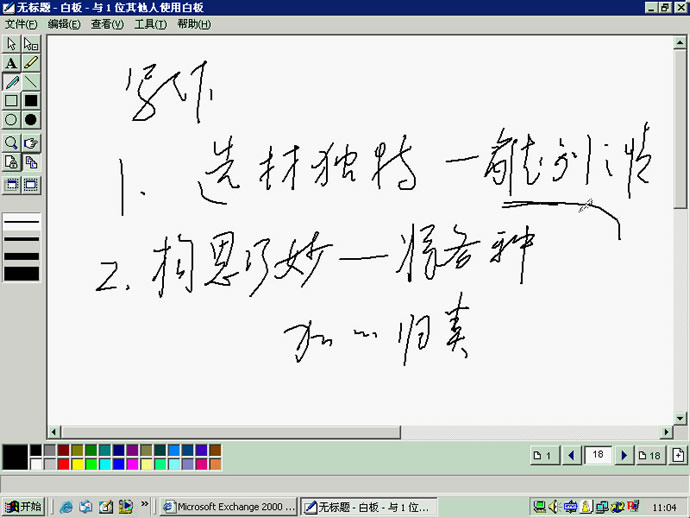 无标题 - 白板 - 与 1 位其他人使用白板
文件(F) 编辑(E) 查看(V) 工具(T) 帮助(H)
A
写作
1. 选材独特 — 之情
2. 构思巧妙 — 将各种
归类
1 18 18
开始 » Microsoft Exchange 2000 ... 无标题 - 白板 - 与 1 位... 11:04